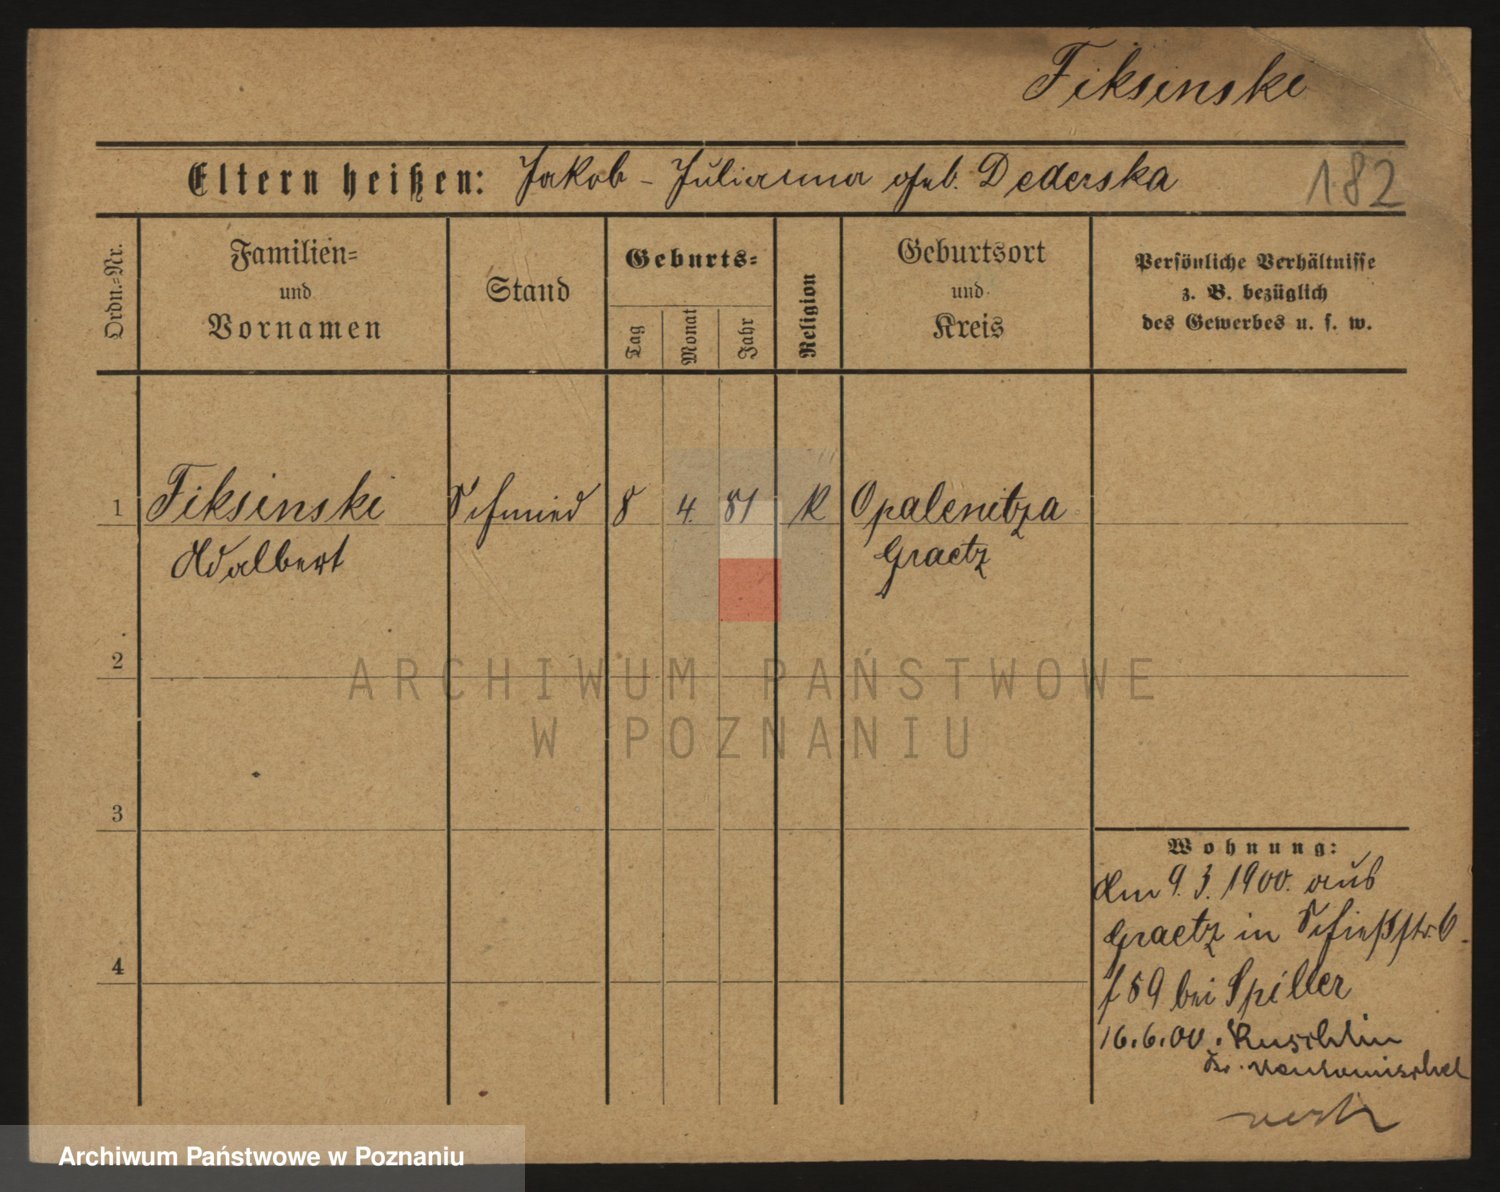 Fiksinski
Eltern heißen: Jakob - Julianna geb. Dederska
182
Ordn.-Nr.
Familien-
und
Vornamen
Stand
Geburts-
Tag
Monat
Jahr
Religion
Geburtsort
und
Kreis
Persönliche Verhältnisse
z. B. bezüglich
des Gewerbes u. s. w.
1 Fiksinski Schmied 8 4. 81 K Opalenitza
Adalbert Graetz
2
ARCHIWUM PAŃSTWOWE
W POZNANIU
3
Wohnung:
Am 9.3.1900. aus
Graetz in Schießstr. 6.
f 89 bei Spiller
4
16.6.00. Kuschlin
Kr. Neutomischel
Archiwum Państwowe w Poznaniu